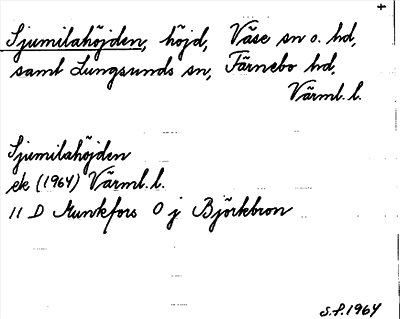 +
Sjumilahöjden, höjd, Väse sn o. hd,
samt Lungsunds sn, Färnebo hd,
Värml. l.
Sjumilahöjden
ek (1964) Värml. l.
11 D Munkfors O j Björkbron
S.P. 1964